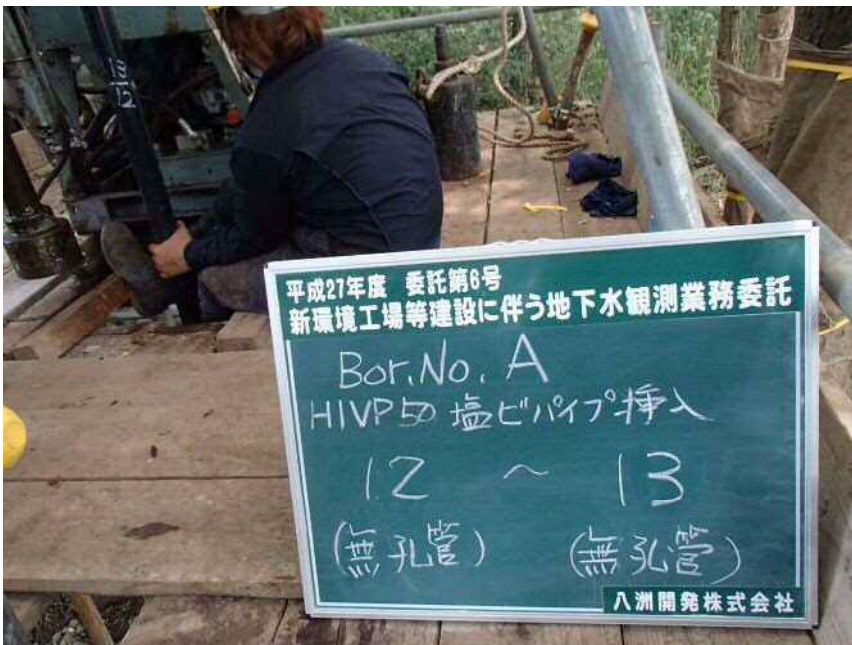 平成27年度 委託第6号
新環境工場等建設に伴う地下水観測業務委託
Bor.No. A
HIVP50 塩ビパイプ挿入
12 ~ 13
(無孔管) (無孔管)
八洲開発株式会社